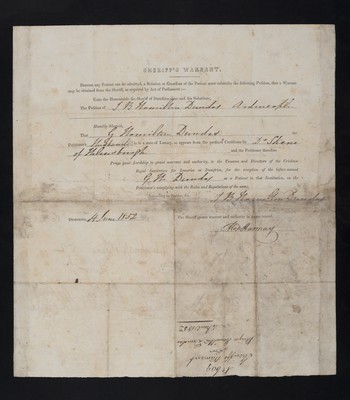 SHERIFF'S WARRANT.
Before any Patient can be admitted, a Relation or Guardian of the Patient must subscribe the following Petition, that a Warrant
may be obtained from the Sheriff, as required by Act of Parliament:—
Unto the Honourable the Sheriff of Dumfries-shire and his Substitutes,
The Petition of J. B. Hamilton Dundas
Humbly Sheweth,
That G. Hamilton Dundas
is in a state of Lunacy as appears from the prefixed Certificate by Dr
of Helensburgh and the Petitioner therefore
Prays your Lordship to grant warrant and authority, to the Trustees and Directors of the Crichton
Royal Institution for Lunatics at Dumfries, for the reception of the before-named
G. H. Dundas as a Patient in that Institution, on the
Petitioner's complying with the Rules and Regulations of the same.
J. B. Hamilton Dundas
Dumfries, 4 June 1852 The Sheriff grants warrant and authority as above craved.
Hannay
Sheriff's Warrant
4 June 1852